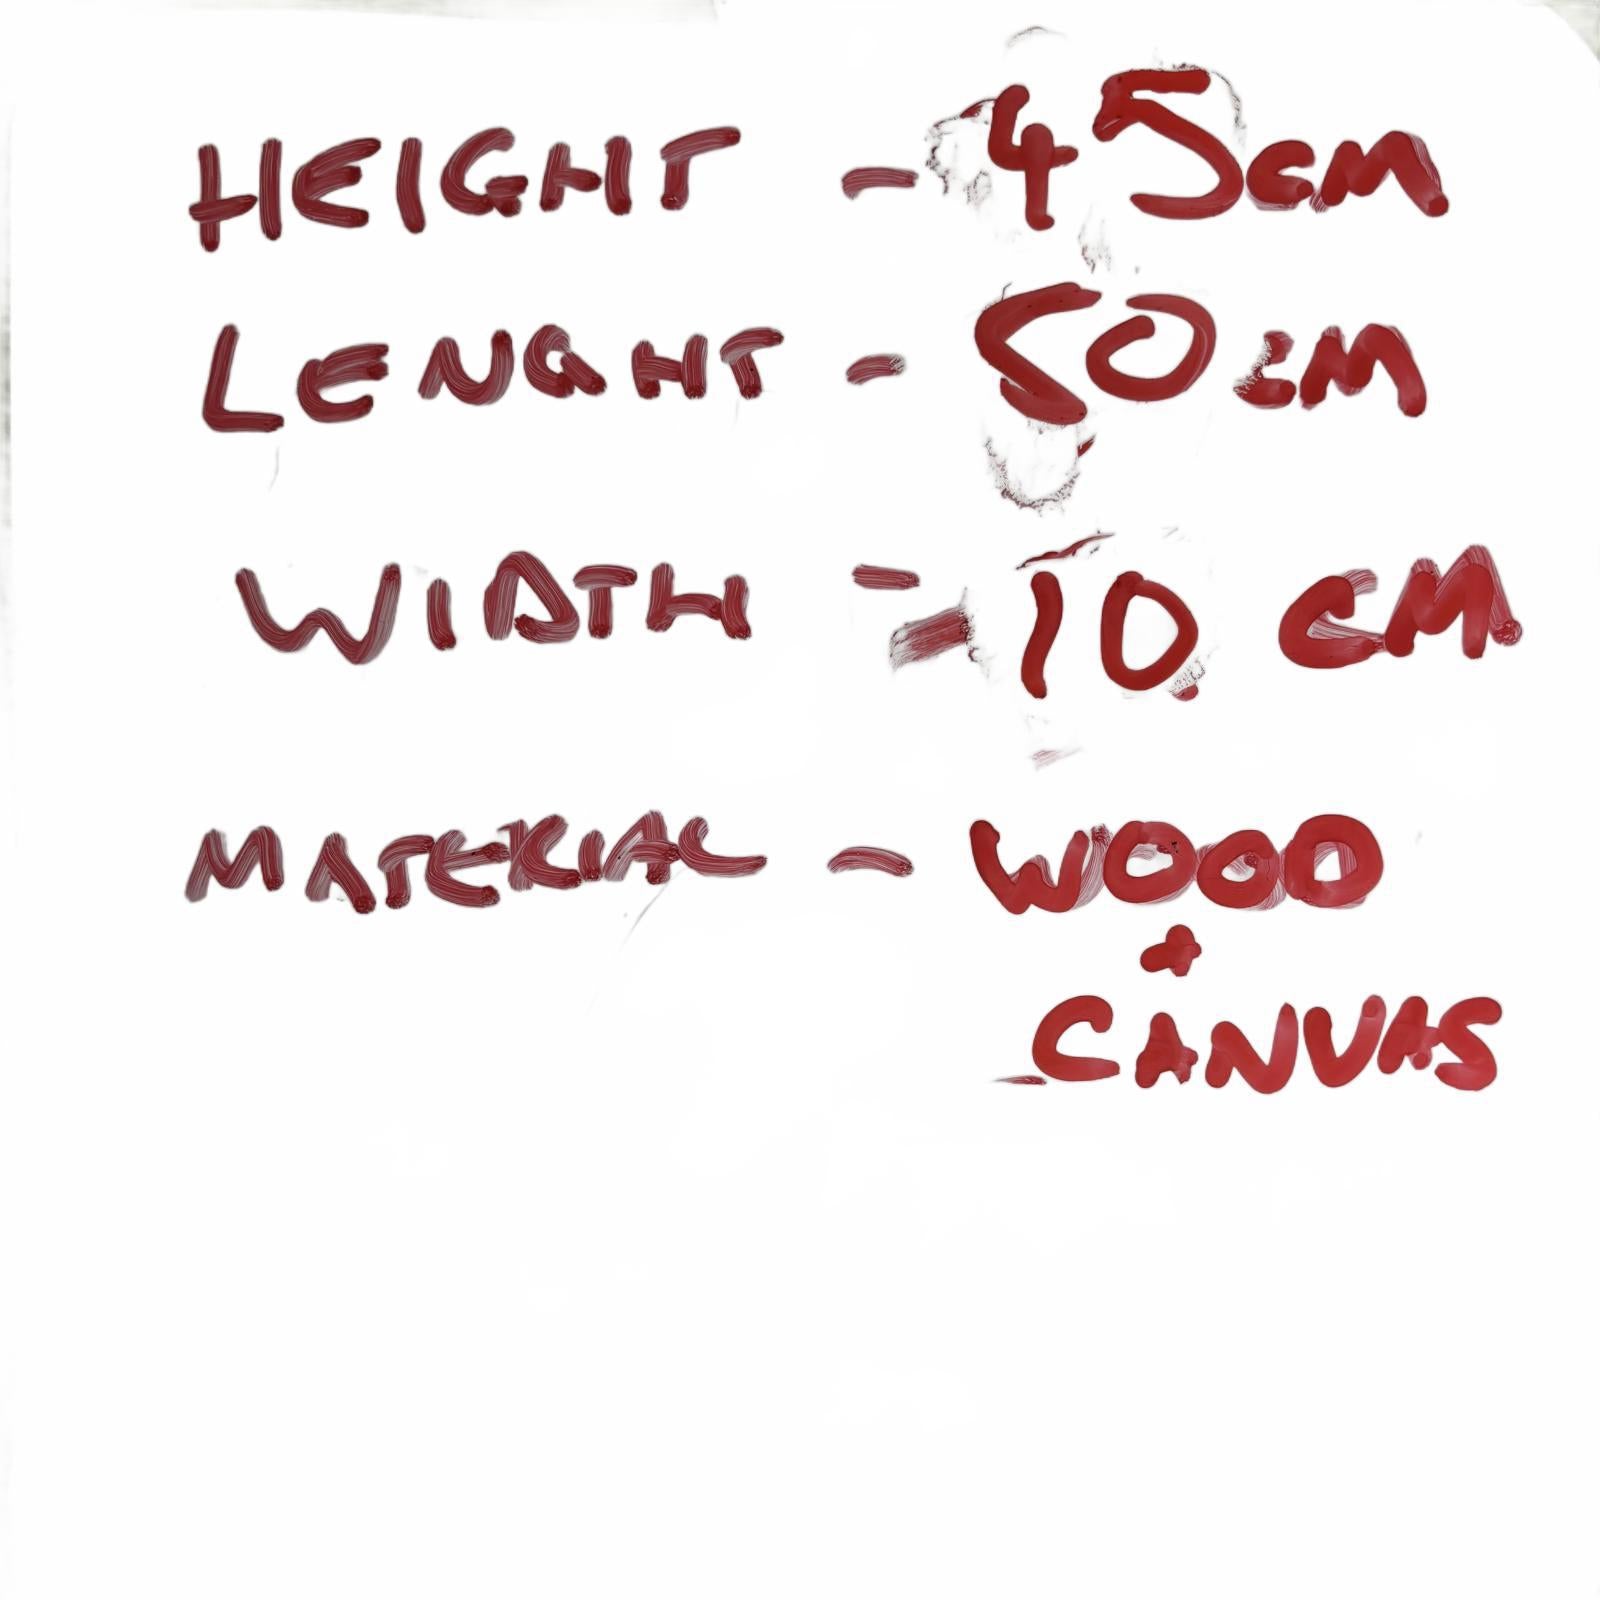 HEIGHT - 45CM
LENGHT - 50CM
WIDTH - 10 CM
MATERIAL - WOOD
+
CANVAS